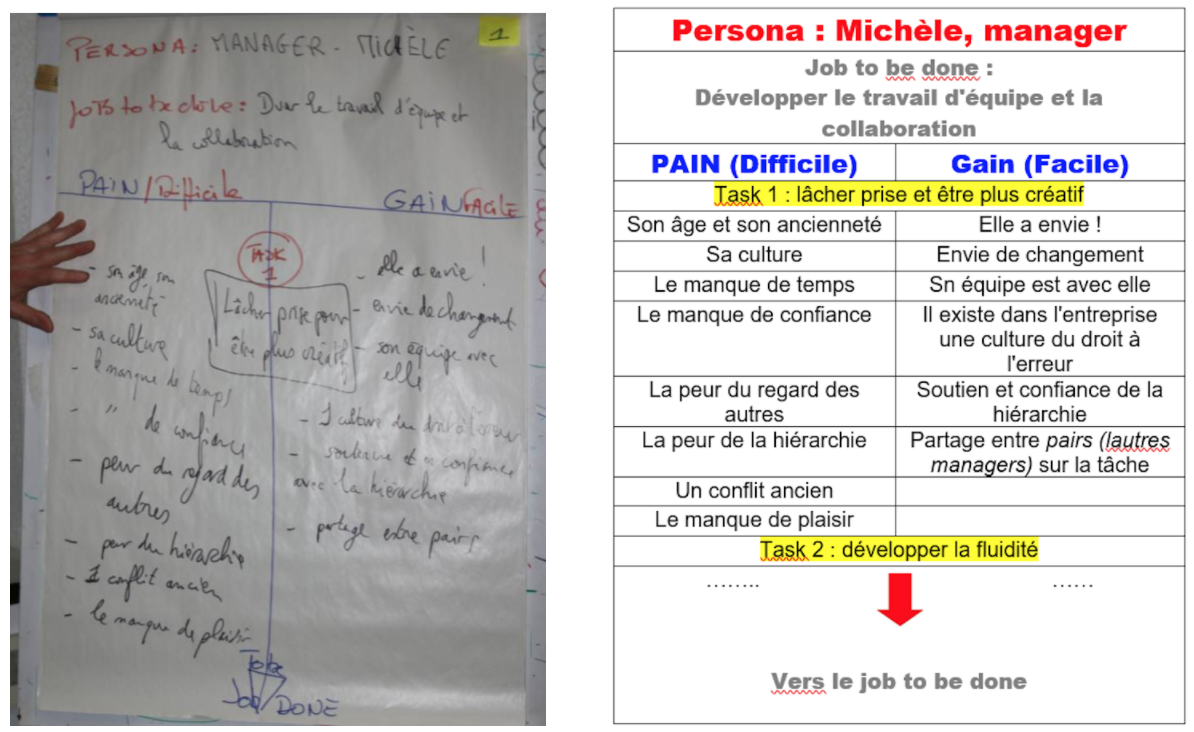 PERSONA: MANAGER - MICHÈLE
1
JOBS to be done: Dver le travail d'équipe et
la collaboration
PAIN/Difficile
GAIN FACILE
TASK
1
Lâcher prise pour
être plus créatif
- son âge son
ancienneté
- sa culture
- le manque de temps
- " de confiance
- peur du regard des
autres
- peur du hiérarchie
- 1 conflit ancien
- le manque de plaisir
- elle a envie !
- envie de changement
- son équipe avec
elle
- 1 culture du droit à l'erreur
- soutenue et en confiance
avec la hiérarchie
- partage entre pairs
To be
JOB DONE
Persona : Michèle, manager
Job to be done :
Développer le travail d'équipe et la
collaboration
PAIN (Difficile) Gain (Facile)
Task 1 : lâcher prise et être plus créatif
Son âge et son ancienneté Elle a envie !
Sa culture Envie de changement
Le manque de temps Sn équipe est avec elle
Le manque de confiance Il existe dans l'entreprise
une culture du droit à
l'erreur
La peur du regard des Soutien et confiance de la
autres hiérarchie
La peur de la hiérarchie Partage entre pairs (lautres
managers) sur la tâche
Un conflit ancien
Le manque de plaisir
Task 2 : développer la fluidité
........ ......
Vers le job to be done